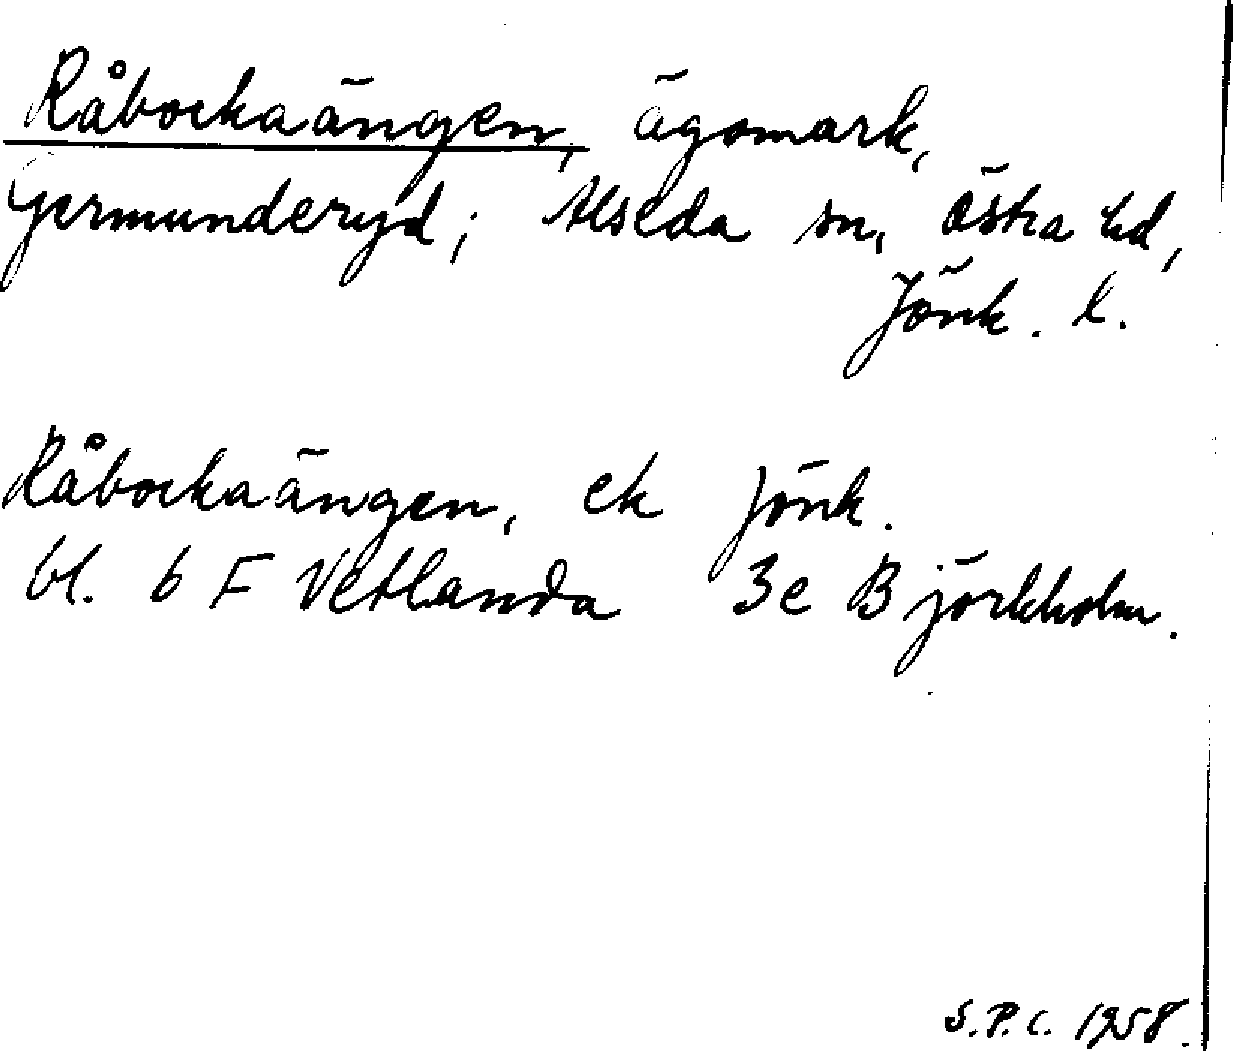 Råbockaängen, ägomark,
Germunderyd; Alseda sn, Östra hd,
Jönk. l.
Råbockaängen, ek Jönk.
bl. 6 F Vetlanda 3e Björkholm.
S.P.C. 1958.